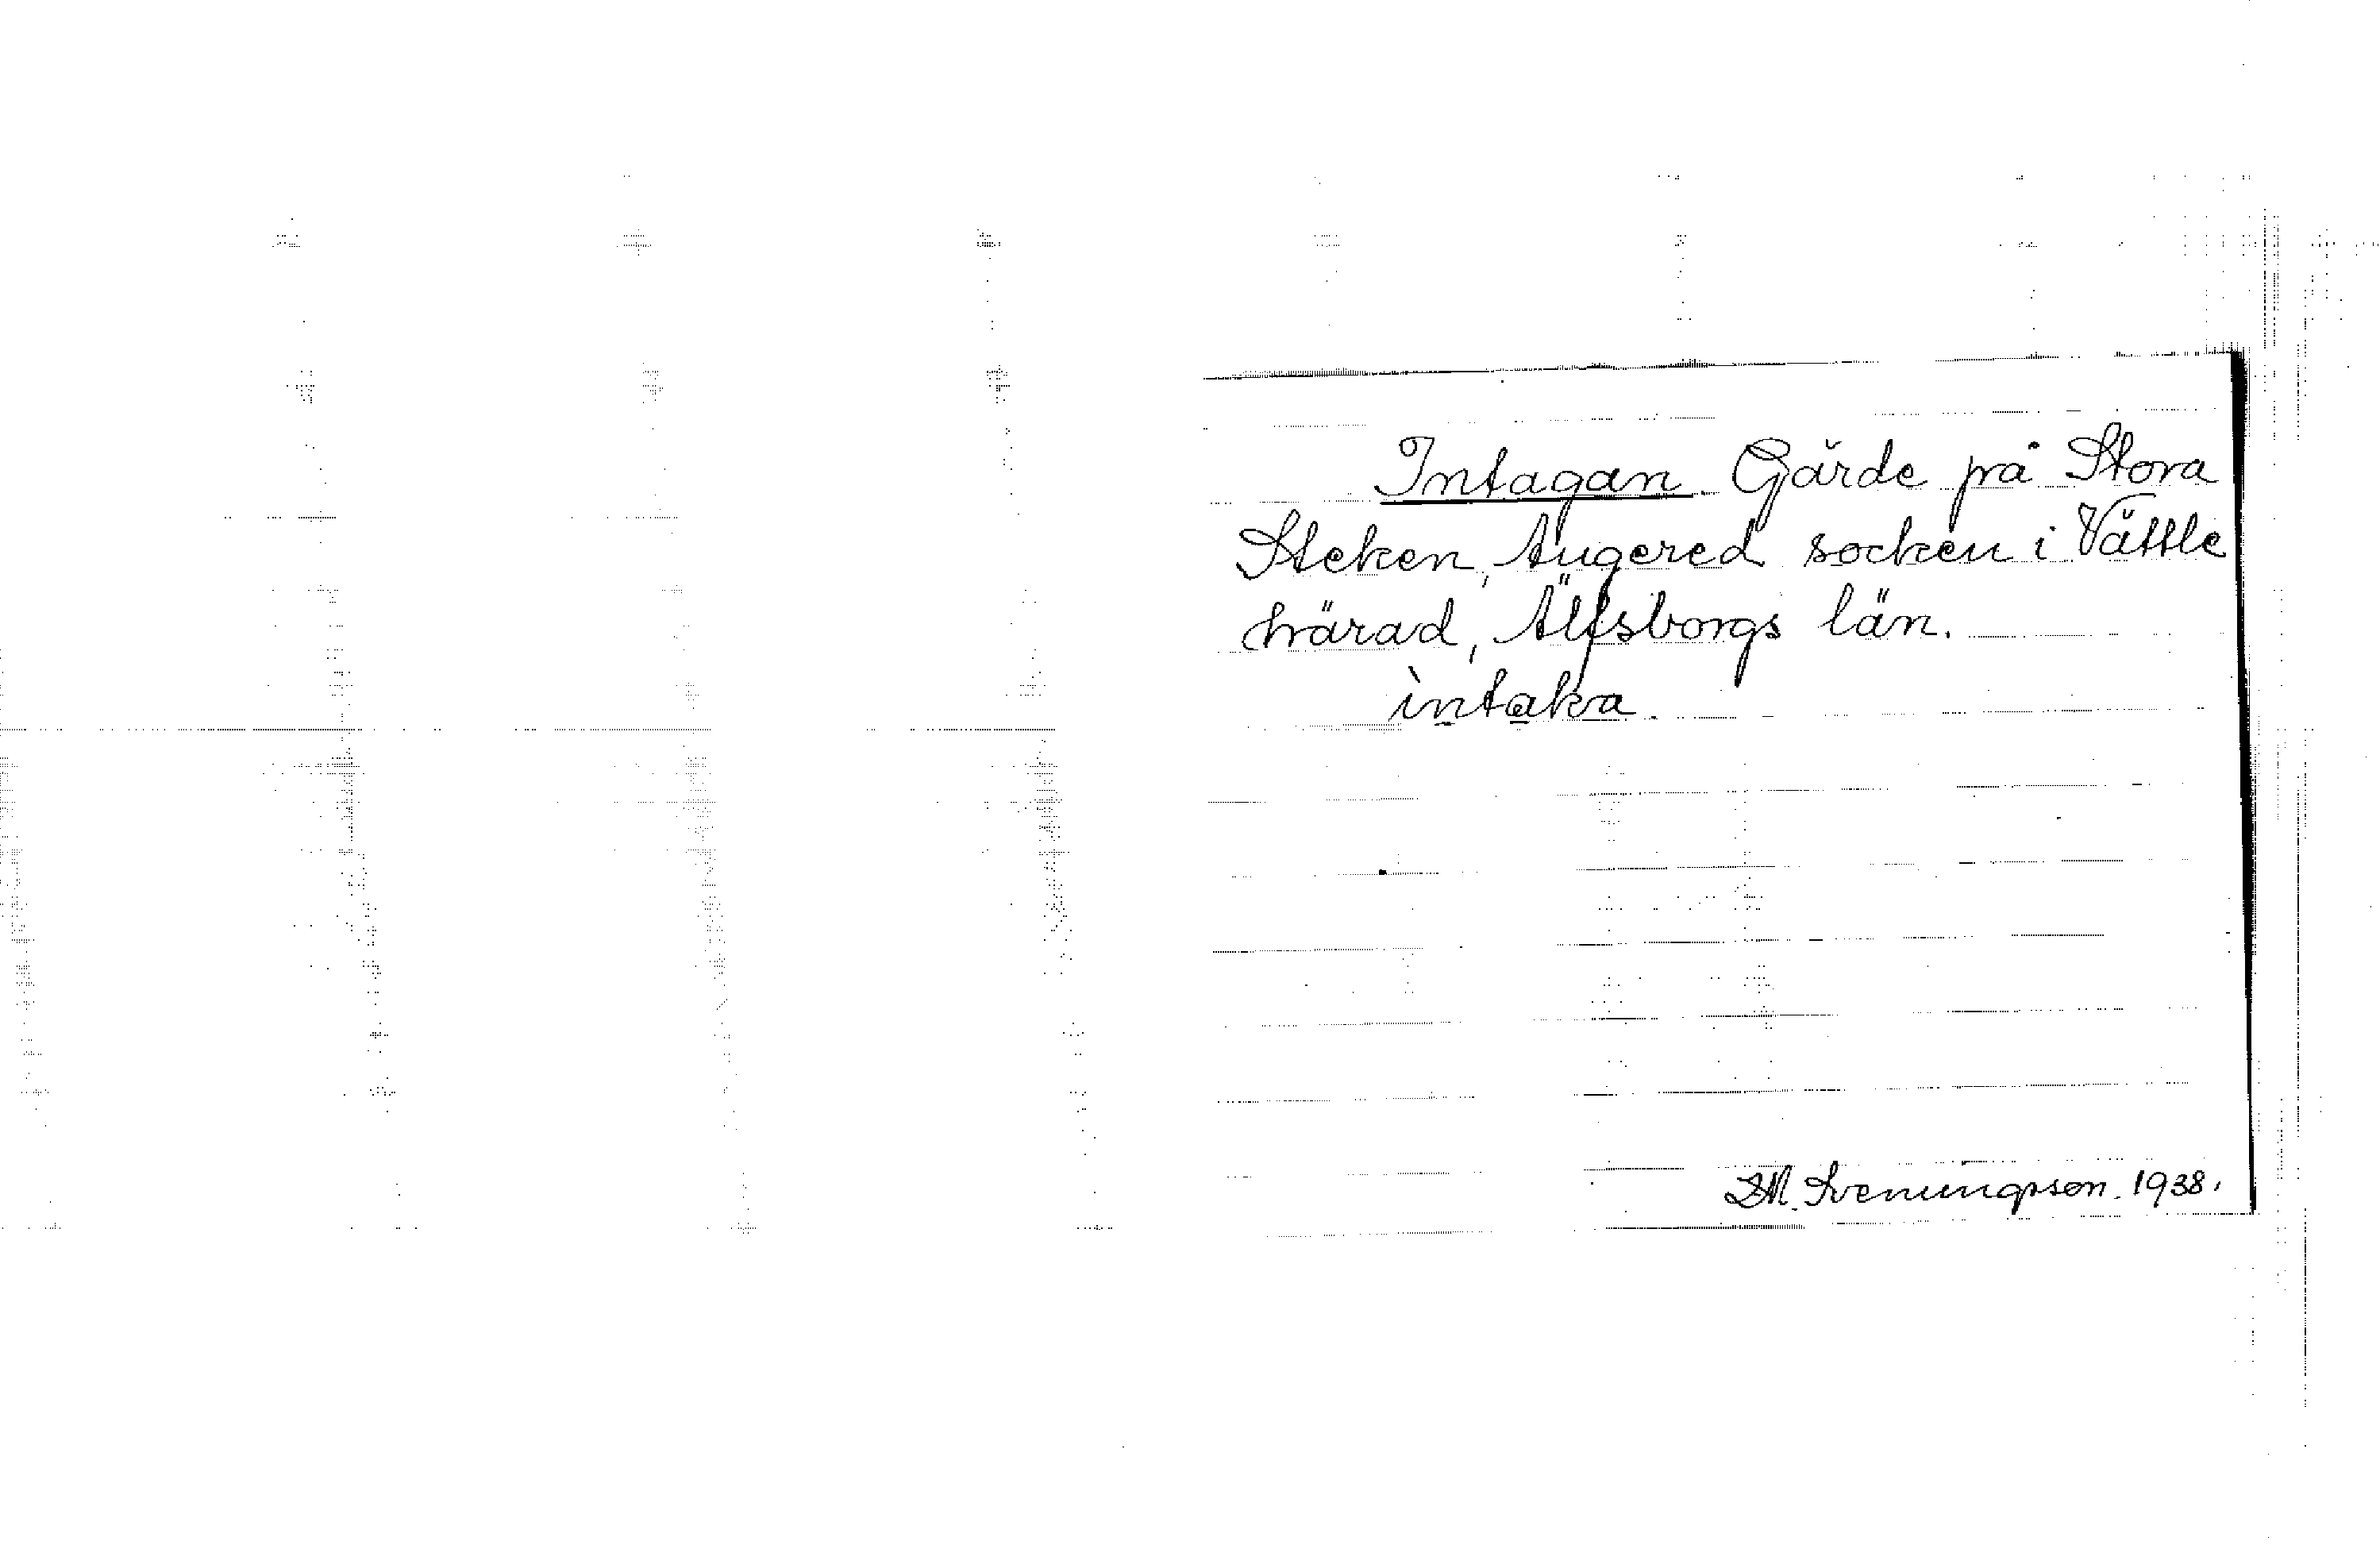 Intagan Gärde på Stora
Steken, Angered socken i Vättle
härad, Älfsborgs län.
ìntaka
D.M. Svenungsson. 1938.